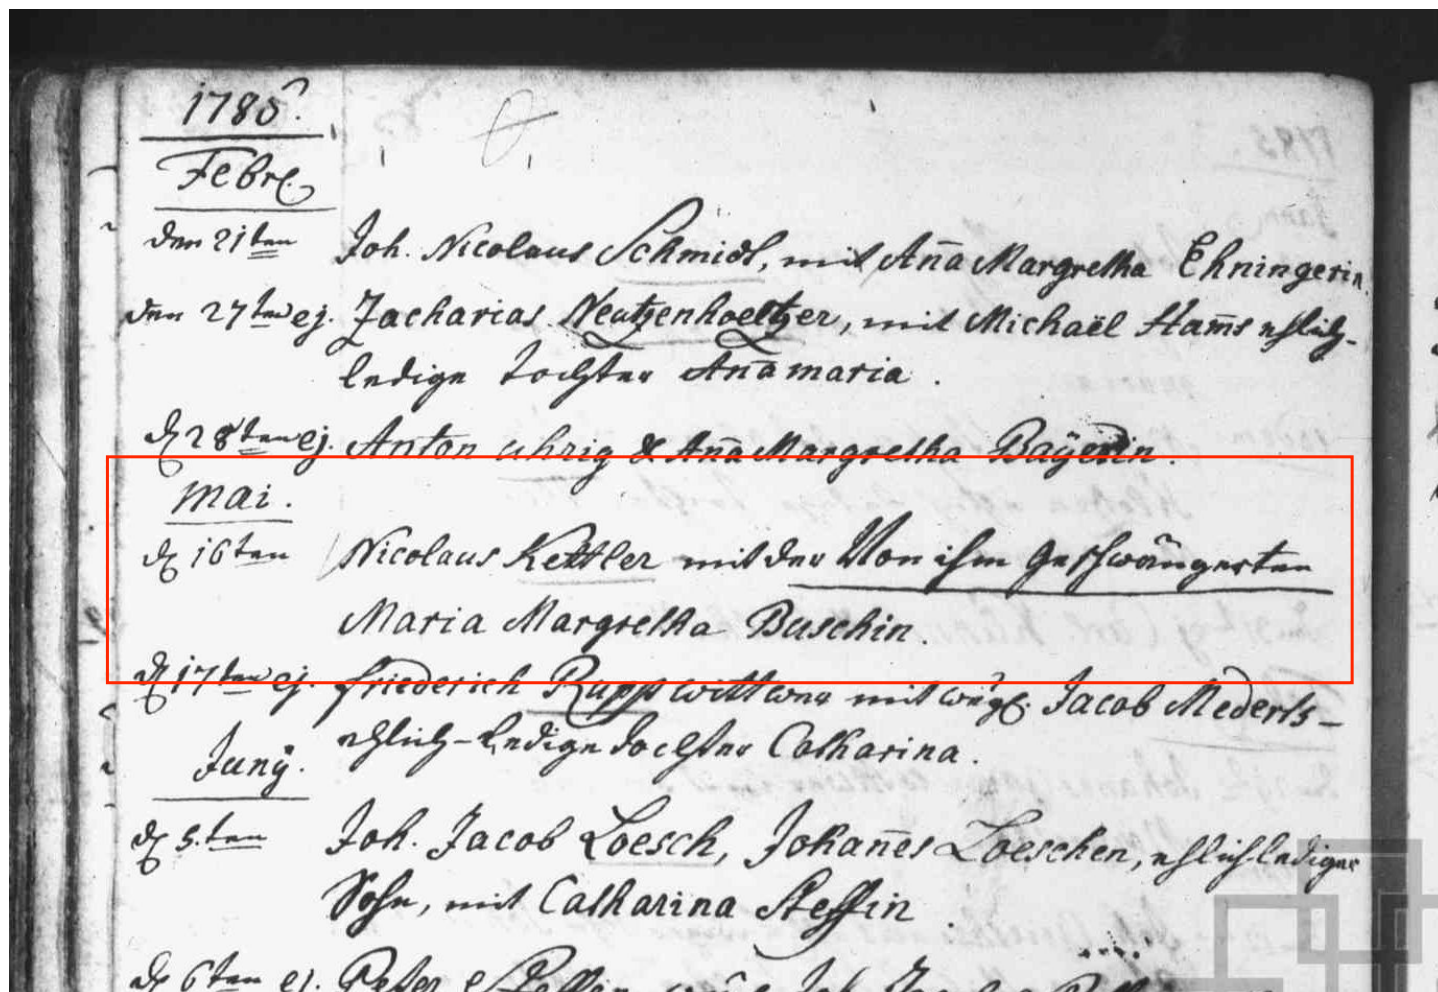 1785.
Febr.
den 21ten Joh. Nicolaus Schmidt, mit Añа Margretha Ehningerin
den 27ten ej. Zacharias Neutzenhoeltzer, mit Michaël Ham̄s ehlich-
ledige Tochter Añamaria.
d 28ten ej. Anton Uhrig & Aña Margretha Bayerin.
Mai.
d 16ten Nicolaus Kettler mit der Von ihm geschwängerten
Maria Margretha Buschin.
d 17ten ej. Friederich Rupp wittwer mit Jacob Mederts-
ehlich-ledige Tochter Catharina.
Junÿ.
d 5.ten Joh. Jacob Loesch, Johan̄es Loeschen, ehlich lediger
Sohn, mit Catharina Steffin
d 6ten ej. Peter Steffen